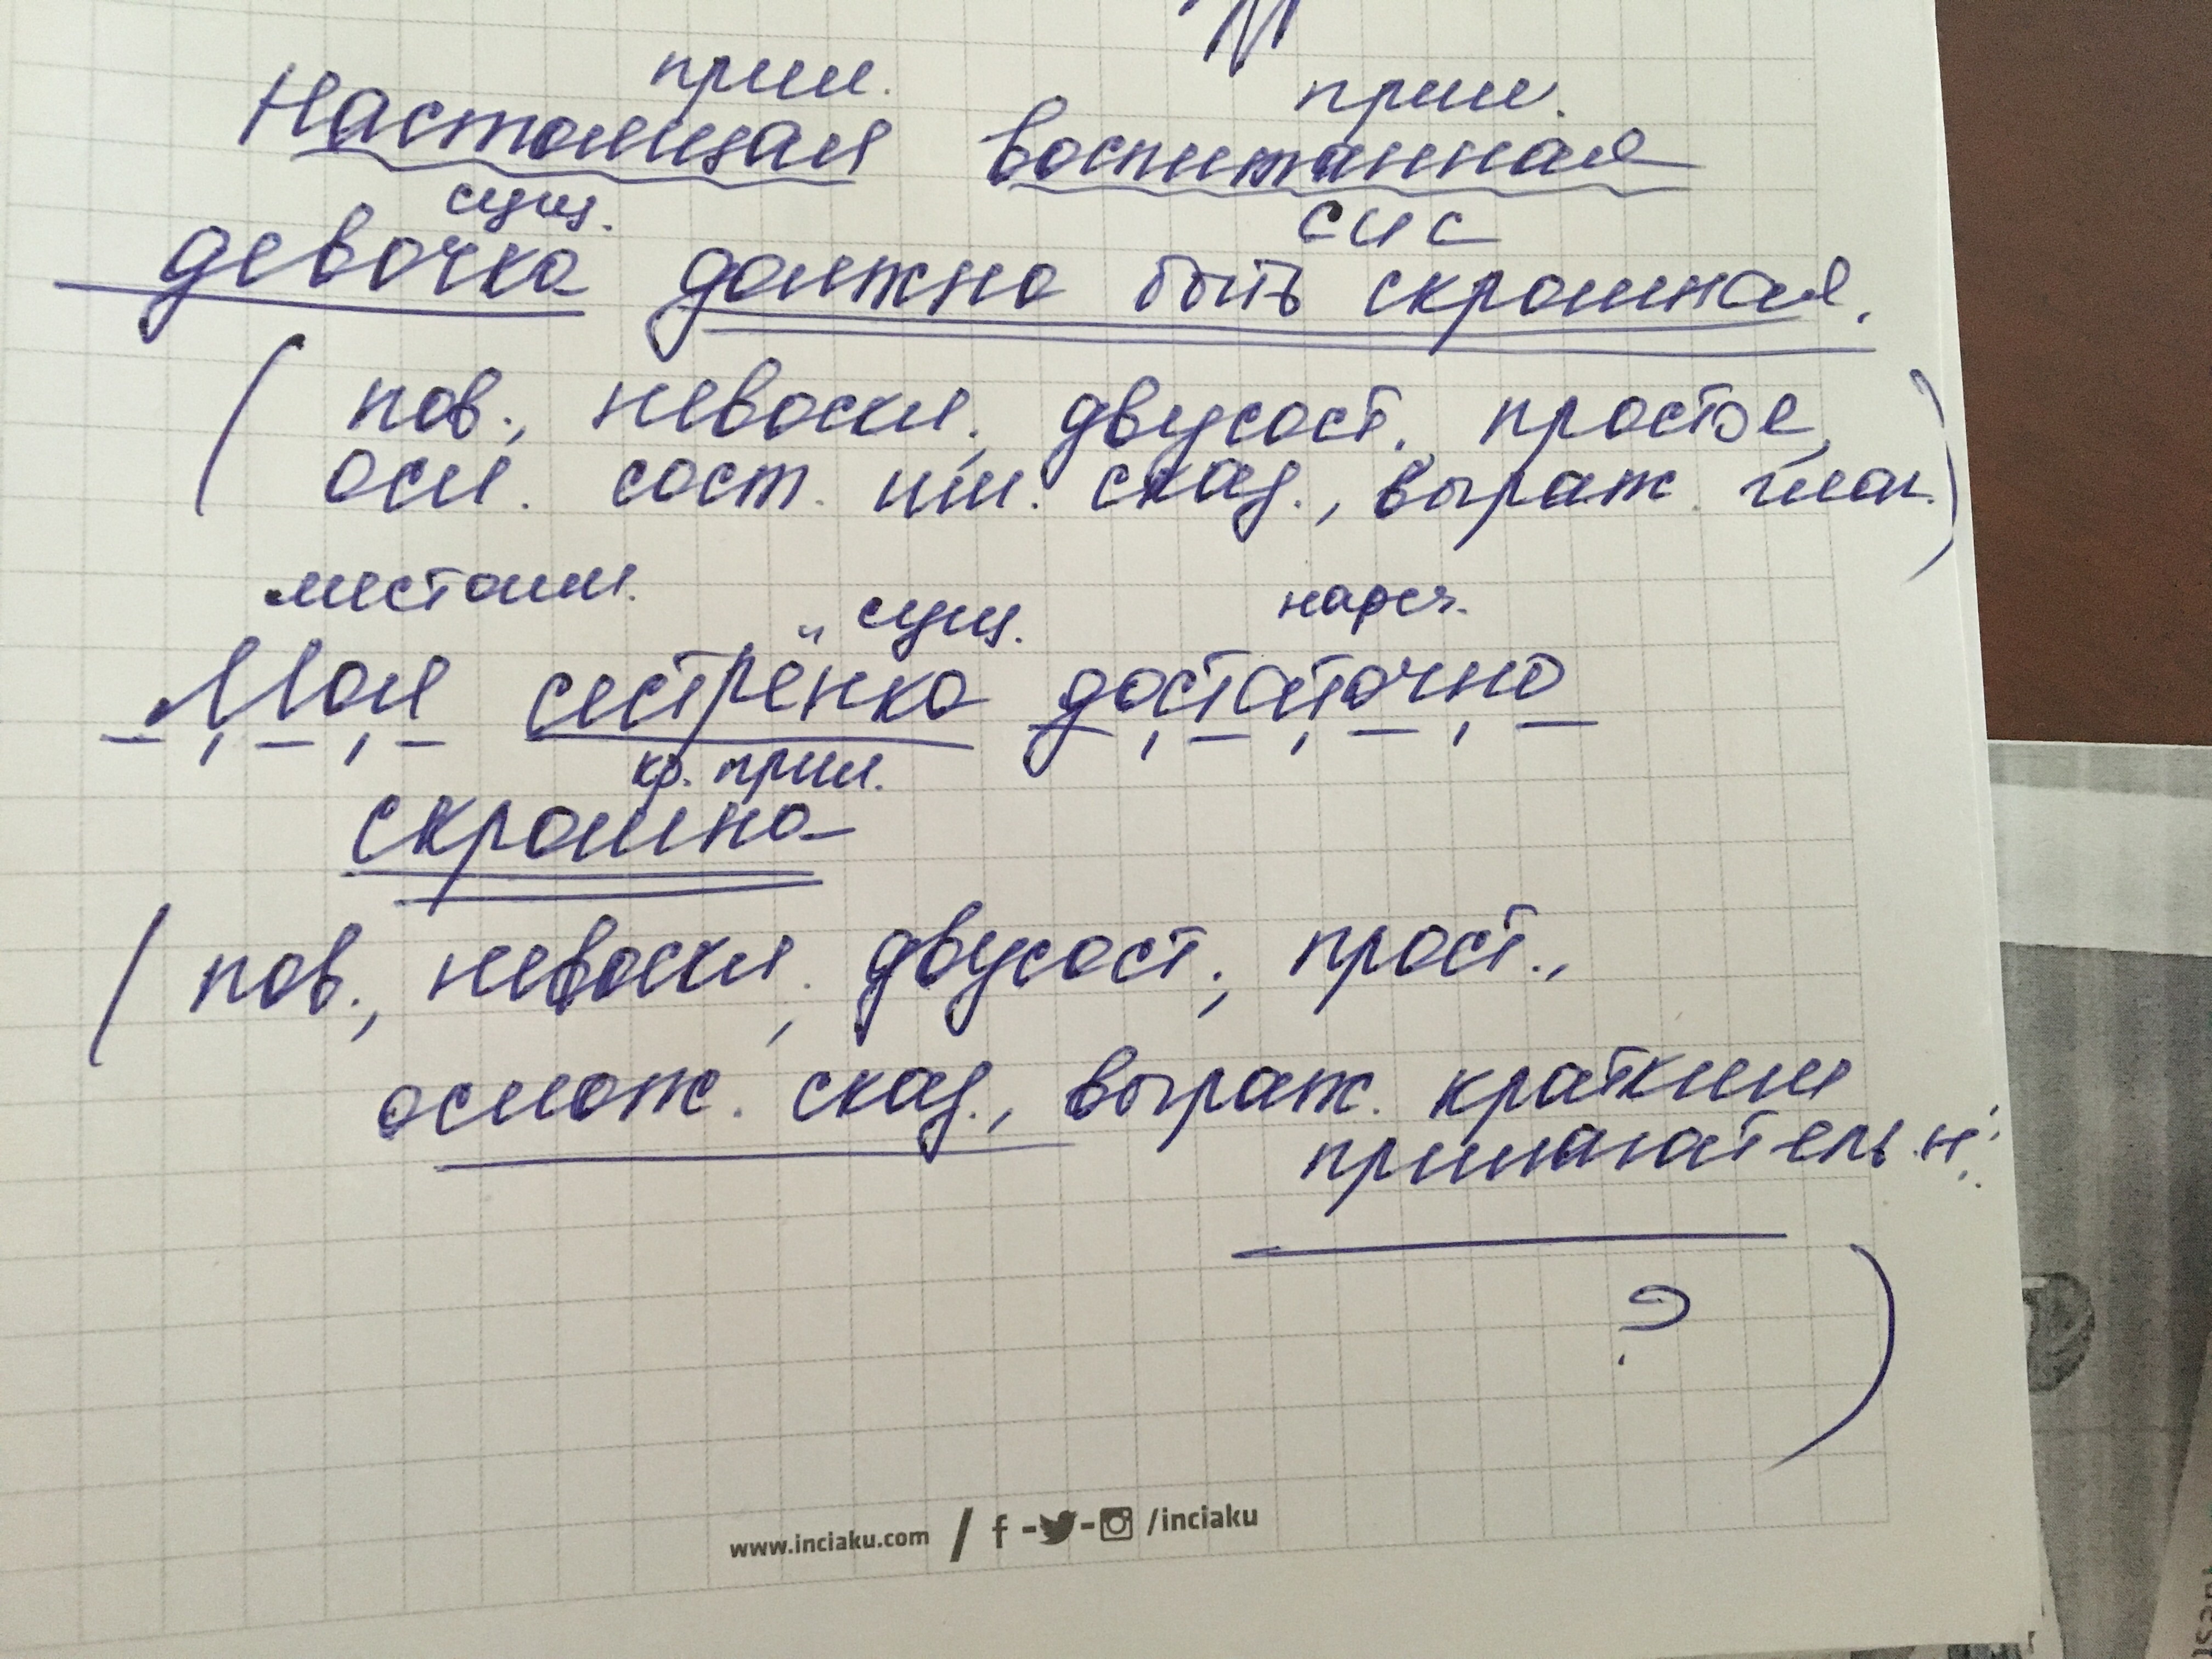 прил. прил.
Настоящая воспитанная
сущ. СИС
девочка должна быть скромная.
(пов., невоскл., двусост. простое,
осл. сост. им. сказ., выраж. глаг.)
местоим. сущ. нареч.
Моя сестрёнка достаточно
кр. прил.
скромна
(пов., невоскл., двусост., прост.,
осмож. сказ., выраж. кратким
прилагательн.
?)
www.inciaku.com / f - - /inciaku